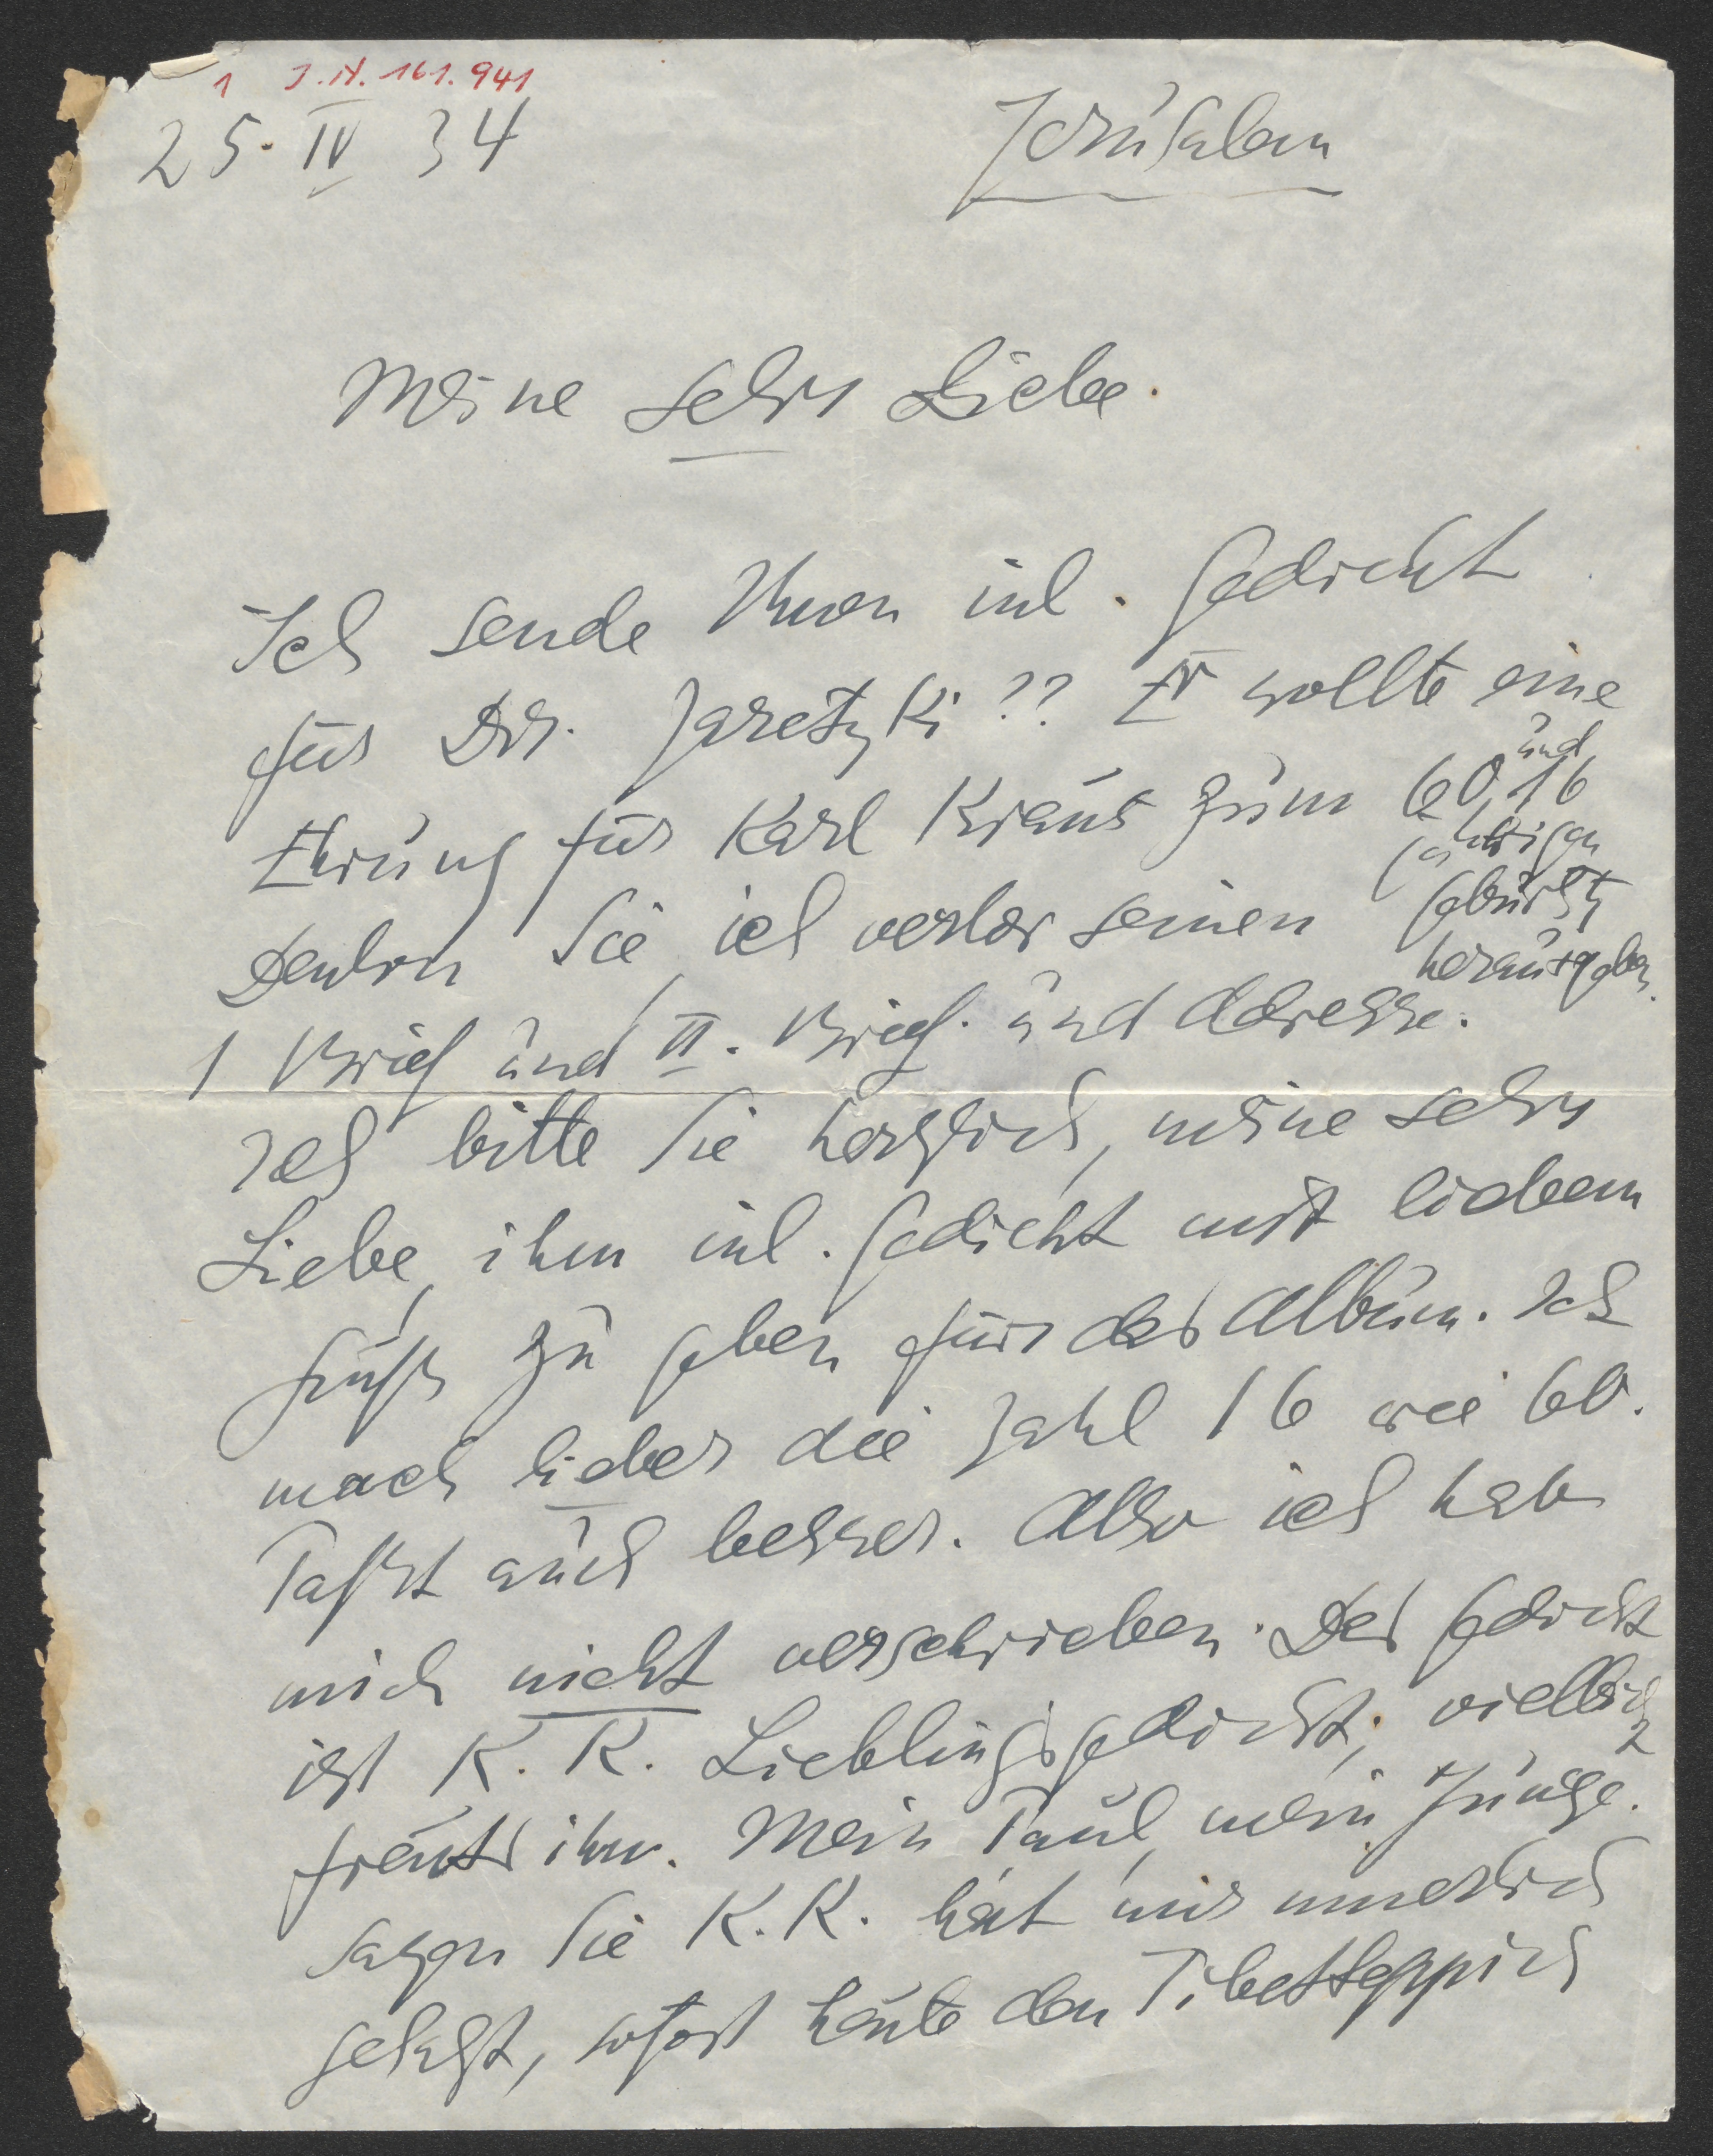 1 J.N. 161.941
25. IV 34
Jerusalem
Meine sehr Liebe.
Ich sende Ihnen inl. Gedicht
für Dr. Jaretzki?? Er wollte eine
Ehrung für Karl Kraus zum 60 und 16
jährigen
Geburtstg
herausgeben.
Denken Sie ich verlor seinen
1 Brief und II. Brief. und Adresse.
Ich bitte Sie herzlich, meine sehr
Liebe, ihm inl. Gedicht mit liebem
Gruß zu geben fürs das Album. Ich
mach lieber die Zahl 16 wie 60.
Paßt auch besser. Also ich hab
mich nicht verschrieben. Das Gedicht
ist K. K. Lieblingsgedicht, vielleicht
freuts ihn. Mein Paul, mein Junge.
Sagen Sie K. K. hat mir innerlich
gesagt, sofort heute den Tibetteppich